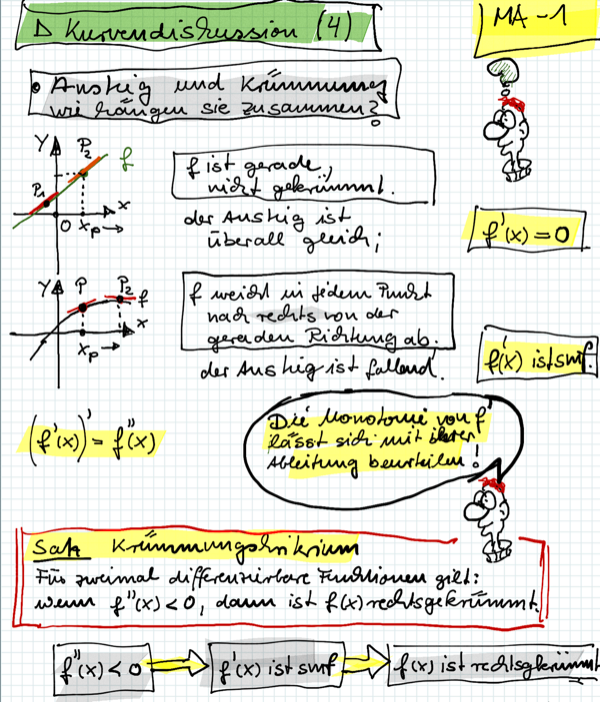 D Kurvendiskussion (4)
MA-1
• Anstieg und Krümmung
wie hängen sie zusammen?
y P₂ f
P₁
0 xₚ → x
f ist gerade,
nicht gekrümmt.
der Anstieg ist
überall gleich;
f'(x) = 0
y P P₂ f
xₚ → x
f weicht in jedem Punkt
nach rechts von der
geraden Richtung ab.
der Anstieg ist fallend.
f'(x) ist smf.
(f'(x))' = f''(x)
Die Monotonie von f'
lässt sich mit ihrer
Ableitung beurteilen!
Satz Krümmungskriterium
Für zweimal differenzierbare Funktionen gilt:
wenn f''(x) < 0, dann ist f(x) rechtsgekrümmt.
f''(x) < 0 ⇒ f'(x) ist smf ⇒ f(x) ist rechtsgekrümmt